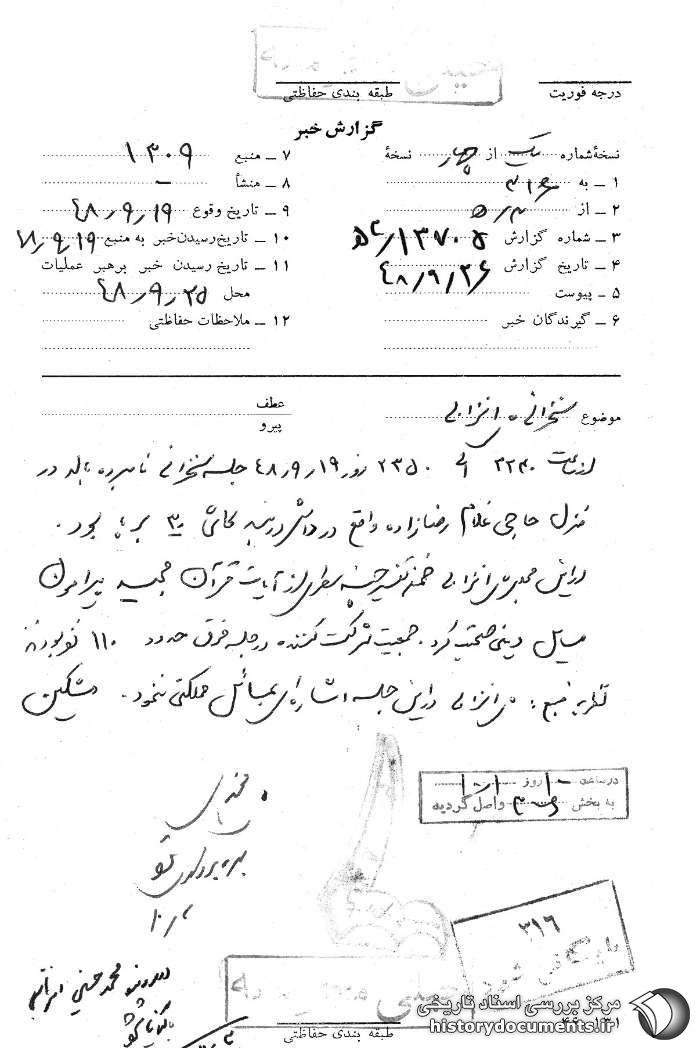 درجه فوریت
طبقه بندی حفاظتی
گزارش خبر
نسخهٔ شماره یک از چهار نسخهٔ
۱ ـ به ۳۱۶
۲ ـ از ۵ه۳
۳ ـ شماره گزارش
۴ ـ تاریخ گزارش ۴۸/۹/۲۶
۵ ـ پیوست
۶ ـ گیرندگان خبر
۷ ـ منبع ۱۳۰۹
۸ ـ منشأ ـ
۹ ـ تاریخ وقوع ۴۸/۹/۱۹
۱۰ ـ تاریخ رسیدن خبر به منبع ۴۸/۹/۱۹
۱۱ ـ تاریخ رسیدن خبر برهبر عملیات
محل ۴۸/۹/۲۵
۱۲ ـ ملاحظات حفاظتی
موضوع سخنرانی انزابی
عطف
پیرو
از ساعت الی ۲۳۵۰ روز ۴۸/۹/۱۹ جلسه سخنرانی نامبرده بالا در
منزل حاجی غلام رضازاده واقع در برپا بود.
در این مجلس انزابی ضمن تفسیر چند سطری از آیات قرآن مجید پیرامون
مسایل دینی صحبت کرد. جمعیت شرکت کننده در جلسه فوق حدود ۱۱۰ نفر بودند
نظریه منبع: انزابی در این جلسه اشاره‌ای بمسائل مملکتی ننمود. مشکین
در ساعت ۱۰ روز
به بخش ۳۱۶ واصل گردید
۳۱۶
بایگانی شود
در پرونده محمد حسین انزابی
بایگانی شود
طبقه بندی حفاظتی
مرکز بررسی اسناد تاریخی
historydocuments.ir